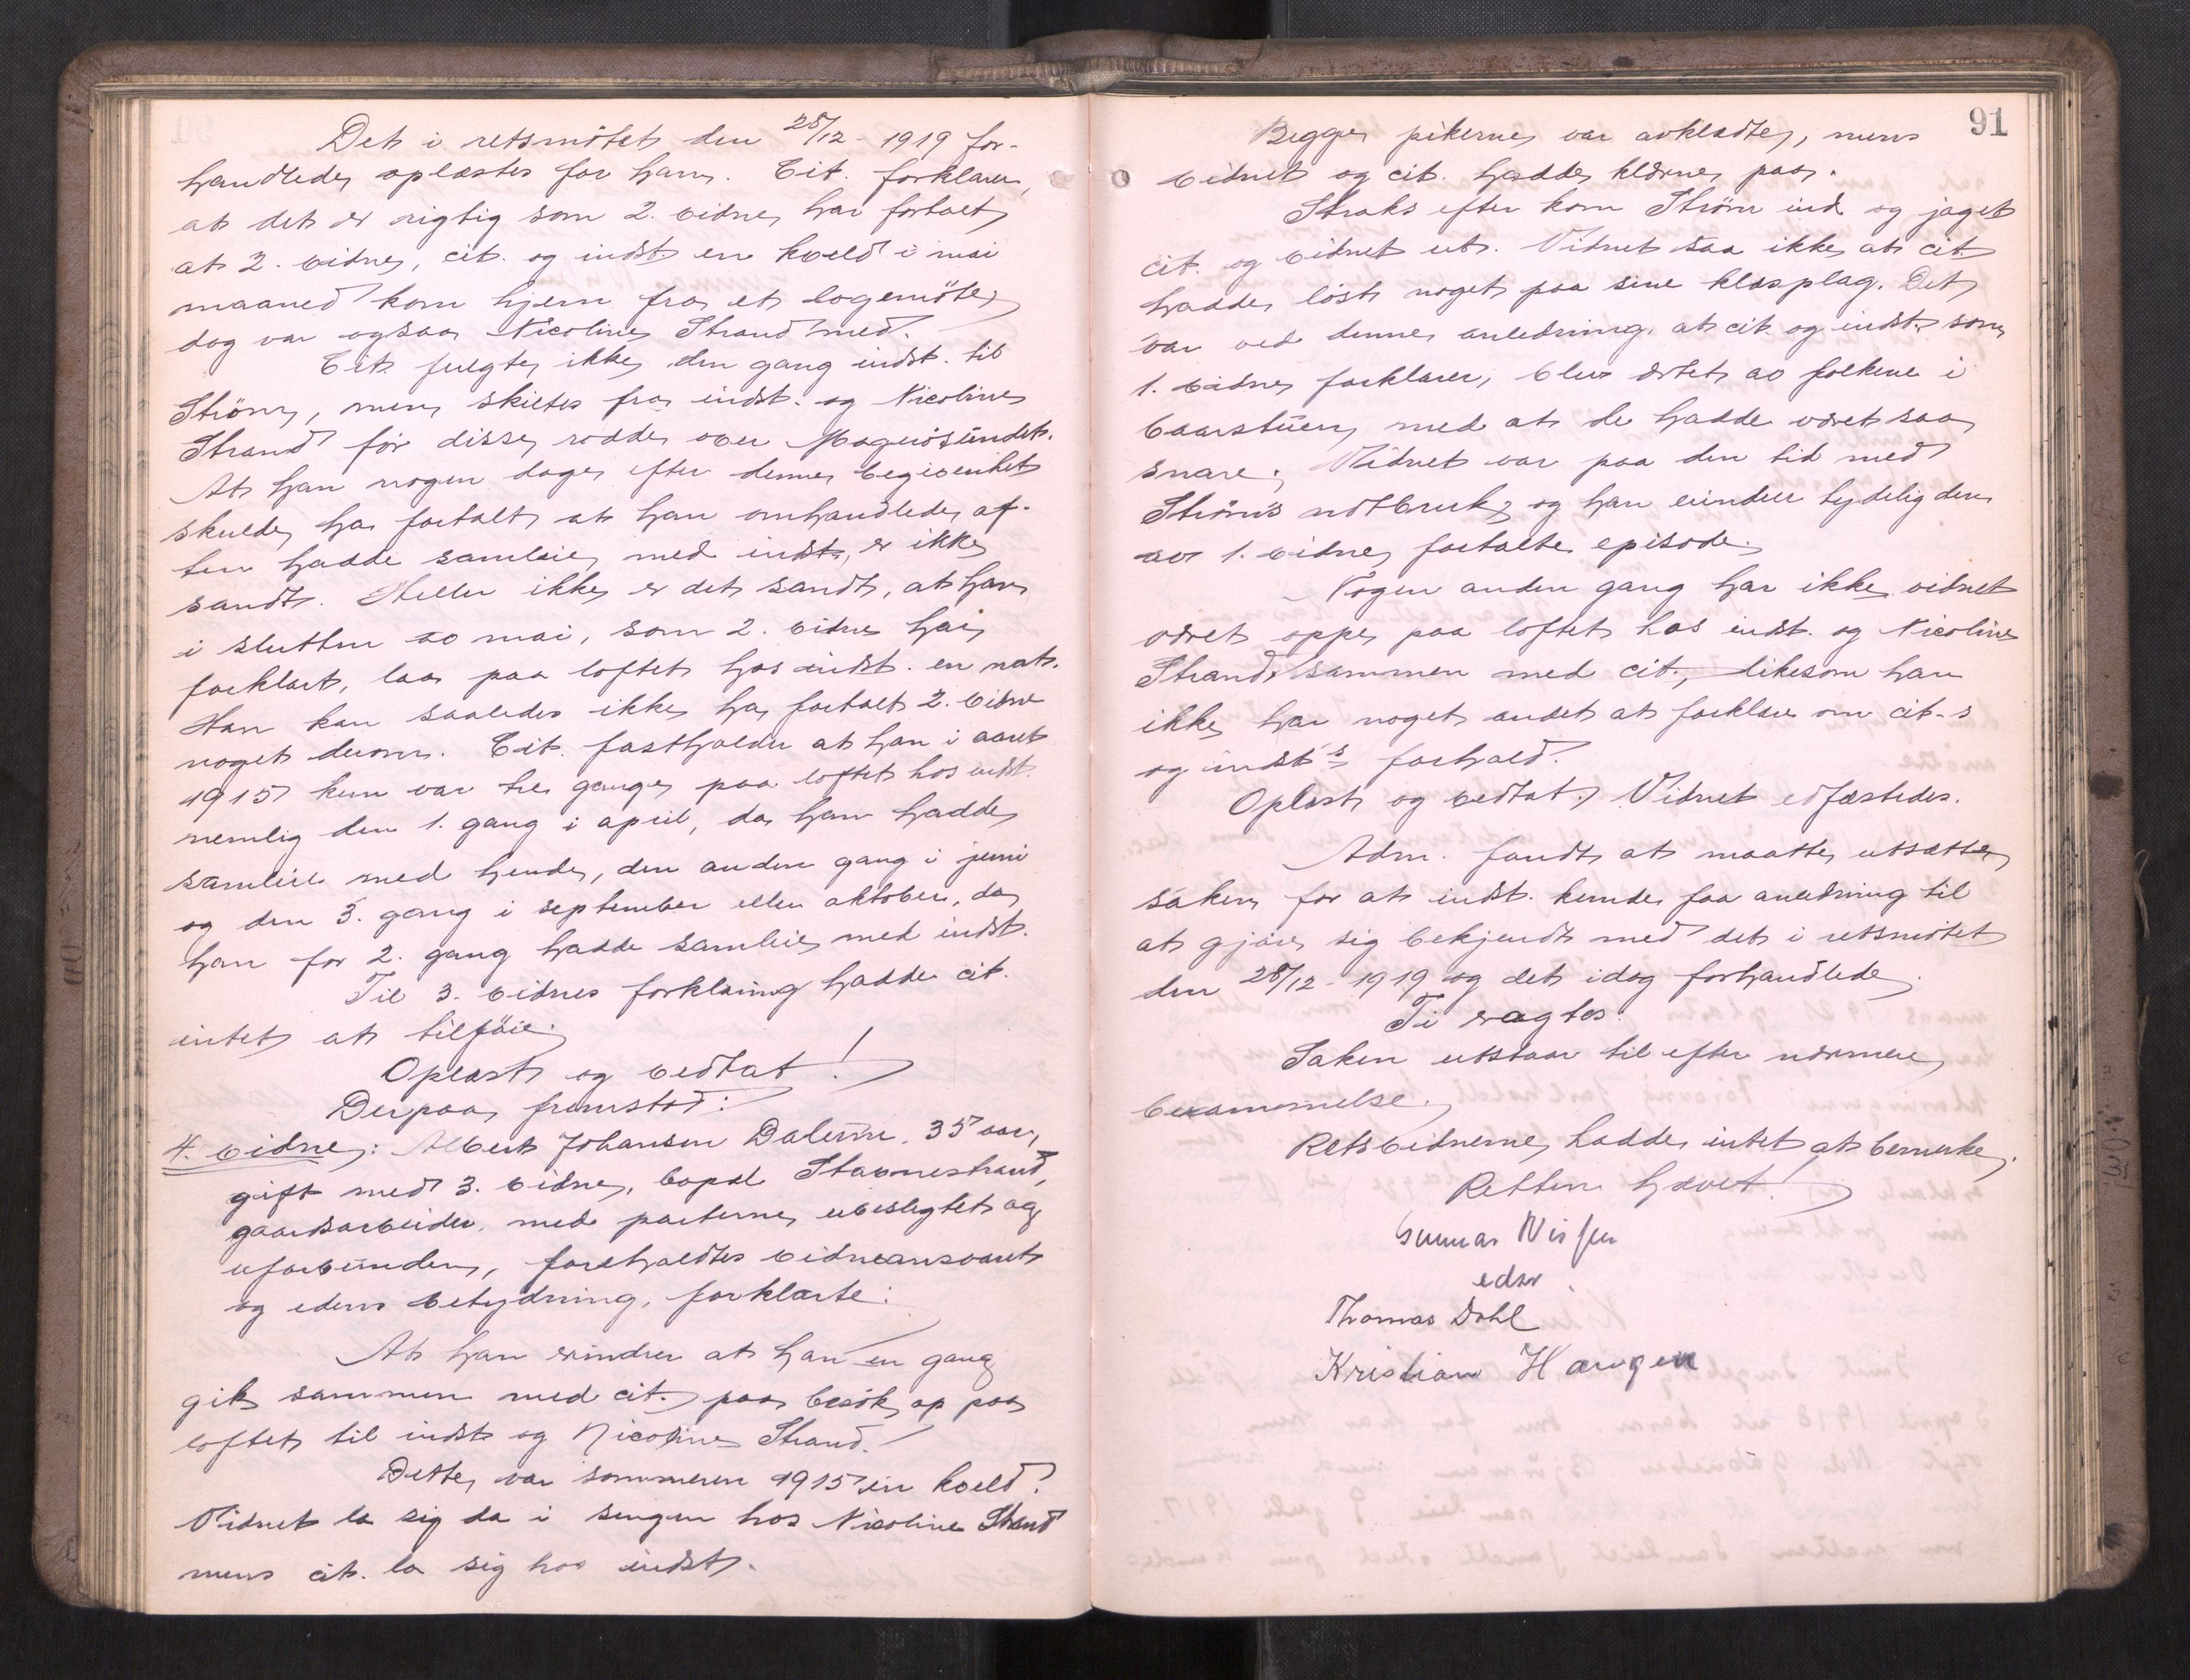 Det i retsmötet den 28/12 - 1919 for-
handlede oplæstes for ham. Cit. forklarer,
at det er rigtig som 2. vidne har fortalt,
at 2. vidne, cit. og indst. en kveld i mai
maaned kom hjem fra et logemöte,
dog var ogsaa Nicoline Strand med.
Cit. fulgte ikke den gang indst. til
Ström, men skiltes fra indst. og Nicoline
Strand för disse rodde over Magerösundet.
At han nogen dage efter denne begivenhet
skulde ha fortalt at han omhandlede af-
ten hadde samleie med indst. er ikke
sandt. Heller ikke er det sandt, at han
i slutten av mai, som 2. vidne har
forklart, laa paa loftet hos indst. en nat.
Han kan saaledes ikke ha fortalt 2. vidne
noget derom. Cit. fastholder at han i aaret
1915 kun var tre gange paa loftet hos indst.
nemlig den 1. gang i april, da han hadde
samleie med hende, den anden gang i juni
og den 3. gang i september eller oktober, da
han for 2. gang hadde samleie med indst.
Til 3. vidnes forklaring hadde cit.
intet at tilföie.
Oplæst og vedtat!
Derpaa fremstod:
4. vidne: Albert Johansen 35 aar,
gift med 3. vidne, bopæl Stavnestrand,
gaardsarbeider, med parterne ubeslegtet og
uforbunden, foreholdtes vidneansvaret
og edens betydning, forklarte:
At han erindrer at han en gang
gik sammen med cit. paa besök op paa
loftet til indst og Nicoline Strand.
Dette var sommeren 1915 en kveld.
Vidnet la sig da i sengen hos Nicoline Strand
mens cit. la sig hos indst.
91
Begge pikerne var avklædte, mens
vidnet og cit. hadde klærne paa.
Straks efter kom Ström ind og jaget
cit. og vidnet ut. Vidnet saa ikke at cit.
hadde löst noget paa sine klæsplag. Det
var ved denne anledning, at cit. og indst. som
1. vidne forklarer, blev ertet av folkene i
baarstuen med at de hadde været saa
snare. Vidnet var paa den tid med
Ström's notbruk, og han erindrer tydelig den
av 1. vidne fortalte episode.
Nogen anden gang har ikke vidnet
været oppe paa loftet hos indst. og Nicoline
Strand sammen med cit., likesom han
ikke har noget andet at forklare om cit-s
og indst's forhold.
Oplæst og vedtat. Vidnet edfæstedes.
Adm. fandt at maatte utsætte
saken for at indst. kunde faa anledning til
at gjöre sig bekjendt med det i retsmötet
den 28/12 - 1919 og det idag forhandlede.
Ti vagtes.
Saken utstaar til efter nærmere
berammelse.
Retsvidnerne hadde intet at bemerke.
Retten hævet!
Gunnar Nissen
edsv.
Thomas Dahl
Kristian Haugen